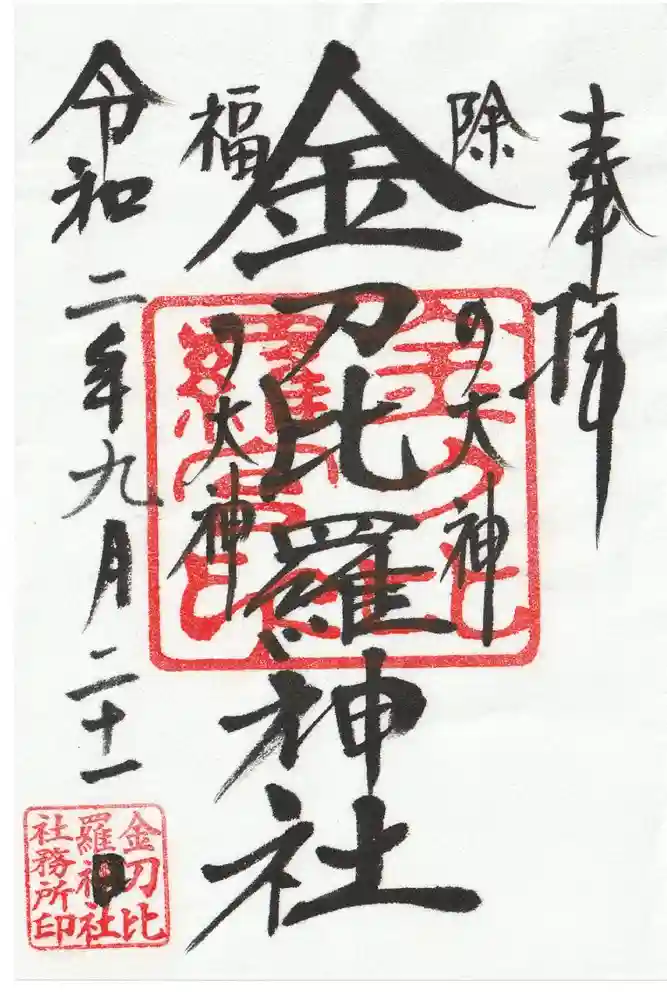 奉拝
除の大神
金刀比羅神社
福の大神
令和二年九月二十一日
金刀比
羅神社
社務所印